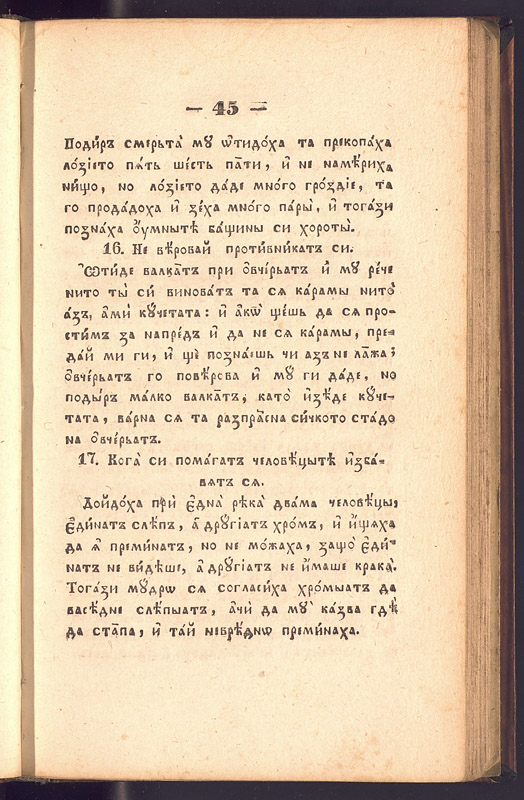 — 45 —
Поди́ръ смерьта̀ мꙋ ѿтидо́ха та прекопа́ха
ло́зіето пѧ́ть ше́сть па́ти, и҆ не намѣ́риха
ни́що, но ло́зіето да́де мно́го гро́здіе, та
го прода́доха и҆ зе́ха мно́го пары̀, и҆ тога́зи
позна́ха оу҆́мнытѣ ба́щины си хороты̀.
16. Не вѣ́ровай проти́вникатъ си.
Ѿти́де валка́тъ при ѻ҆вче́рьатъ и҆ мꙋ ре́че
нито ты̀ си́ винова́тъ та сѧ ка́рамы нито̀
а҆́зъ, а҆мѝ кꙋ́четата: и҆ а҆́кѡ ще́шь да сѧ про-
сти́мъ за напре́дъ и҆ да не сѧ ка́рамы, пре-
да́й ми ги, и҆ щѐ позна́ешь чи а҆зъ не ла́жа;
ѻ҆вче́рьатъ го повѣ́рова и҆ мꙋ ги да́де, но
поды́ръ ма́лко валка́тъ, като̀ и҆зѣ́де кꙋ́че-
тата, ва́рна сѧ та разпра́сна си́чкото ста́до
на ѻ҆вче́рьатъ.
17. Кога̀ си пома́гатъ человѣ́цытѣ и҆зба́-
вѧтъ сѧ.
Дойдо́ха прѝ є҆дна̀ рѣка̀ два́ма человѣ́цы,
є҆ди́натъ слѣ́пъ, а҆ дрꙋ́гіатъ хро́мъ, и҆ и҆́щѧха
да ѧ҆̀ преми́натъ, но не мо́жаха, защо̀ є҆ди́-
натъ не ви́дѣше, а҆ дрꙋ́гіатъ не и҆́маше крака̀.
Тога́зи мꙋ́дрѡ сѧ согласи́ха хро́мыатъ да
васе́дне слѣ́пыатъ, а҆чѝ да мꙋ̀ ка́зва гдѣ̀
да ста́па, и҆ та́й невре́днѡ преми́наха.